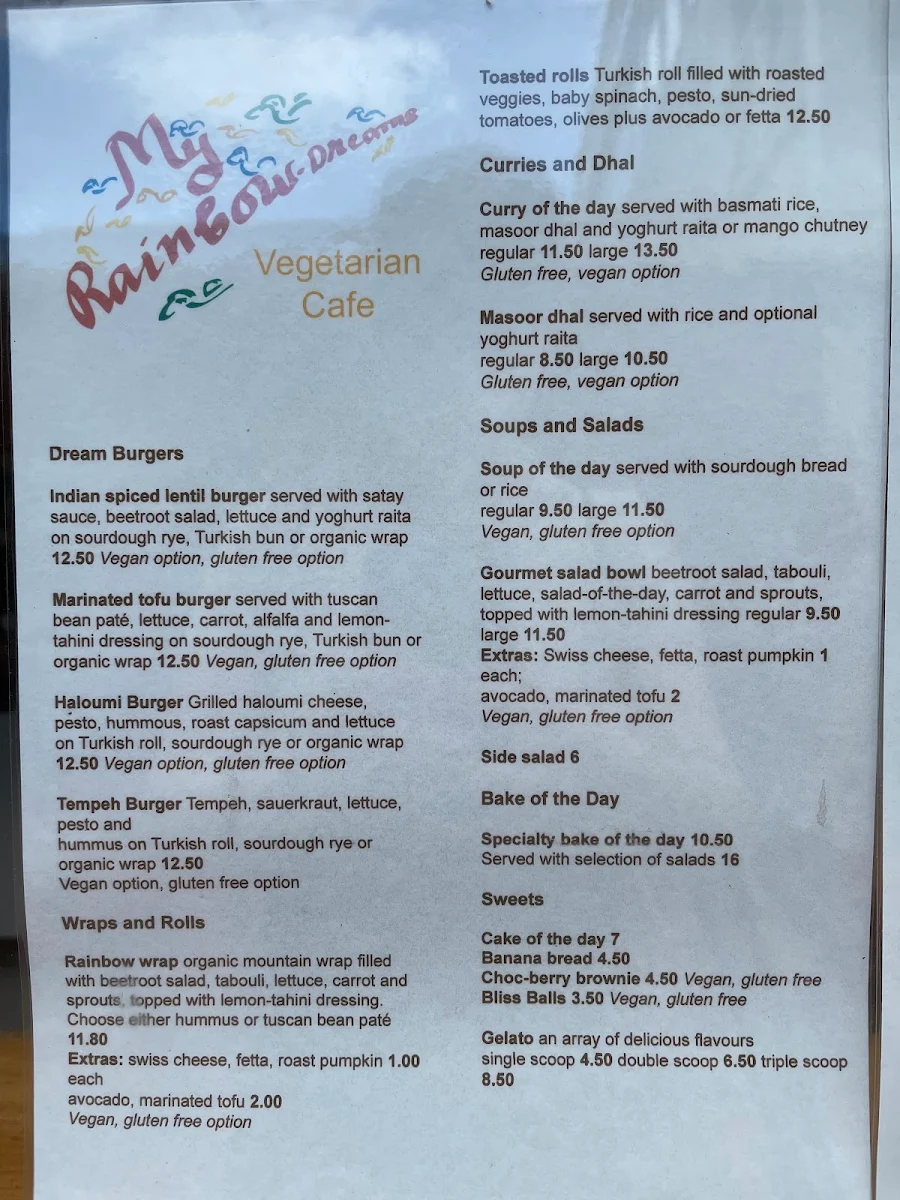 My
Rainbow-Dreams
Vegetarian
Cafe
Dream Burgers
Indian spiced lentil burger served with satay
sauce, beetroot salad, lettuce and yoghurt raita
on sourdough rye, Turkish bun or organic wrap
12.50 Vegan option, gluten free option
Marinated tofu burger served with tuscan
bean paté, lettuce, carrot, alfalfa and lemon-
tahini dressing on sourdough rye, Turkish bun or
organic wrap 12.50 Vegan, gluten free option
Haloumi Burger Grilled haloumi cheese,
pesto, hummous, roast capsicum and lettuce
on Turkish roll, sourdough rye or organic wrap
12.50 Vegan option, gluten free option
Tempeh Burger Tempeh, sauerkraut, lettuce,
pesto and
hummus on Turkish roll, sourdough rye or
organic wrap 12.50
Vegan option, gluten free option
Wraps and Rolls
Rainbow wrap organic mountain wrap filled
with beetroot salad, tabouli, lettuce, carrot and
sprouts, topped with lemon-tahini dressing.
Choose either hummus or tuscan bean paté
11.80
Extras: swiss cheese, fetta, roast pumpkin 1.00
each
avocado, marinated tofu 2.00
Vegan, gluten free option
Toasted rolls Turkish roll filled with roasted
veggies, baby spinach, pesto, sun-dried
tomatoes, olives plus avocado or fetta 12.50
Curries and Dhal
Curry of the day served with basmati rice,
masoor dhal and yoghurt raita or mango chutney
regular 11.50 large 13.50
Gluten free, vegan option
Masoor dhal served with rice and optional
yoghurt raita
regular 8.50 large 10.50
Gluten free, vegan option
Soups and Salads
Soup of the day served with sourdough bread
or rice
regular 9.50 large 11.50
Vegan, gluten free option
Gourmet salad bowl beetroot salad, tabouli,
lettuce, salad-of-the-day, carrot and sprouts,
topped with lemon-tahini dressing regular 9.50
large 11.50
Extras: Swiss cheese, fetta, roast pumpkin 1
each;
avocado, marinated tofu 2
Vegan, gluten free option
Side salad 6
Bake of the Day
Specialty bake of the day 10.50
Served with selection of salads 16
Sweets
Cake of the day 7
Banana bread 4.50
Choc-berry brownie 4.50 Vegan, gluten free
Bliss Balls 3.50 Vegan, gluten free
Gelato an array of delicious flavours
single scoop 4.50 double scoop 6.50 triple scoop
8.50